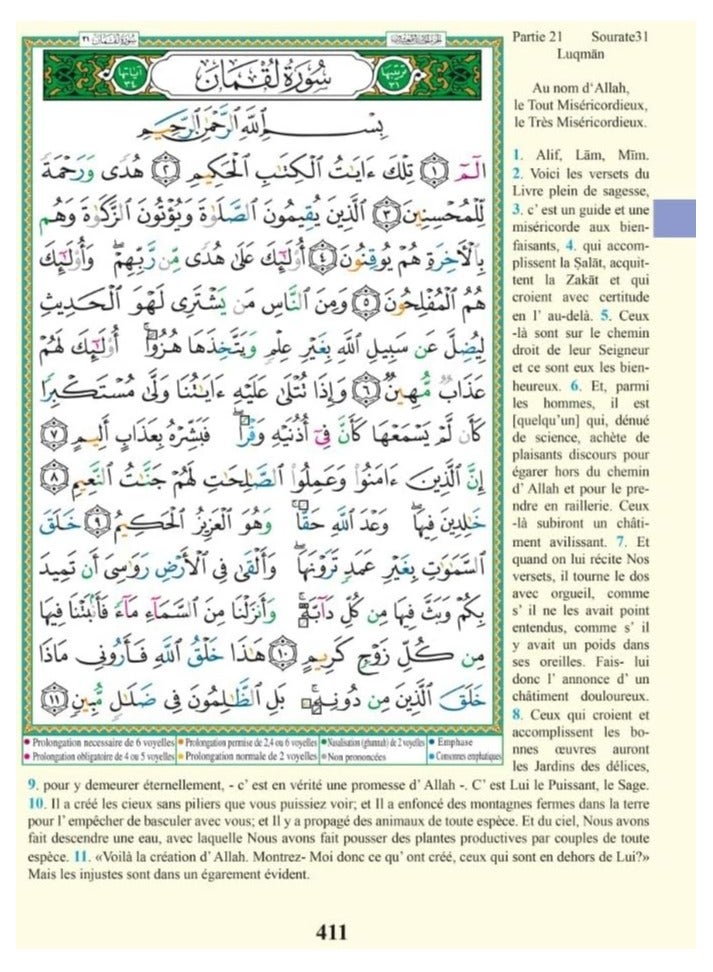 سُورَةُ لُقْمَان ٣١
الجُزْءُ الحَادِي وَالعِشْرُونَ
آيَاتُهَا ٣٤
سُورَةُ لُقْمَانَ
تَرْتِيبُهَا ٣١
بِسْمِ ٱللَّهِ ٱلرَّحْمَٰنِ ٱلرَّحِيمِ
الٓمٓ ١ تِلْكَ ءَايَٰتُ ٱلْكِتَٰبِ ٱلْحَكِيمِ ٢ هُدًى وَرَحْمَةً
لِّلْمُحْسِنِينَ ٣ ٱلَّذِينَ يُقِيمُونَ ٱلصَّلَوٰةَ وَيُؤْتُونَ ٱلزَّكَوٰةَ وَهُم
بِٱلْءَاخِرَةِ هُمْ يُوقِنُونَ ٤ أُو۟لَٰٓئِكَ عَلَىٰ هُدًى مِّن رَّبِّهِمْ ۖ وَأُو۟لَٰٓئِكَ
هُمُ ٱلْمُفْلِحُونَ ٥ وَمِنَ ٱلنَّاسِ مَن يَشْتَرِى لَهْوَ ٱلْحَدِيثِ
لِيُضِلَّ عَن سَبِيلِ ٱللَّهِ بِغَيْرِ عِلْمٍ وَيَتَّخِذَهَا هُزُوًا ۚ أُو۟لَٰٓئِكَ لَهُمْ
عَذَابٌ مُّهِينٌ ٦ وَإِذَا تُتْلَىٰ عَلَيْهِ ءَايَٰتُنَا وَلَّىٰ مُسْتَكْبِرًا
كَأَن لَّمْ يَسْمَعْهَا كَأَنَّ فِىٓ أُذُنَيْهِ وَقْرًا ۖ فَبَشِّرْهُ بِعَذَابٍ أَلِيمٍ ٧
إِنَّ ٱلَّذِينَ ءَامَنُوا۟ وَعَمِلُوا۟ ٱلصَّٰلِحَٰتِ لَهُمْ جَنَّٰتُ ٱلنَّعِيمِ ٨
خَٰلِدِينَ فِيهَا ۖ وَعْدَ ٱللَّهِ حَقًّا ۚ وَهُوَ ٱلْعَزِيزُ ٱلْحَكِيمُ ٩ خَلَقَ
ٱلسَّمَٰوَٰتِ بِغَيْرِ عَمَدٍ تَرَوْنَهَا ۖ وَأَلْقَىٰ فِى ٱلْأَرْضِ رَوَٰسِىَ أَن تَمِيدَ
بِكُمْ وَبَثَّ فِيهَا مِن كُلِّ دَآبَّةٍ ۚ وَأَنزَلْنَا مِنَ ٱلسَّمَآءِ مَآءً فَأَنۢبَتْنَا فِيهَا
مِن كُلِّ زَوْجٍ كَرِيمٍ ١٠ هَٰذَا خَلْقُ ٱللَّهِ فَأَرُونِى مَاذَا
خَلَقَ ٱلَّذِينَ مِن دُونِهِۦ ۚ بَلِ ٱلظَّٰلِمُونَ فِى ضَلَٰلٍ مُّبِينٍ ١١
Prolongation necessaire de 6 voyelles
Prolongation permise de 2,4 ou 6 voyelles
Nasalisation (ghunnah) de 2 voyelles
Emphase
Prolongation obligatoire de 4 ou 5 voyelles
Prolongation normale de 2 voyelles
Non prononcées
Consonnes emphatiques
Partie 21 Sourate31
Luqmān
Au nom d'Allah,
le Tout Miséricordieux,
le Très Miséricordieux.
1. Alif, Lām, Mīm.
2. Voici les versets du
Livre plein de sagesse,
3. c' est un guide et une
miséricorde aux bien-
faisants, 4. qui accom-
plissent la Ṣalāt, acquit-
tent la Zakāt et qui
croient avec certitude
en l' au-delà. 5. Ceux
-là sont sur le chemin
droit de leur Seigneur
et ce sont eux les bien-
heureux. 6. Et, parmi
les hommes, il est
[quelqu'un] qui, dénué
de science, achète de
plaisants discours pour
égarer hors du chemin
d' Allah et pour le pre-
ndre en raillerie. Ceux
-là subiront un châti-
ment avilissant. 7. Et
quand on lui récite Nos
versets, il tourne le dos
avec orgueil, comme
s' il ne les avait point
entendus, comme s' il
y avait un poids dans
ses oreilles. Fais- lui
donc l' annonce d' un
châtiment douloureux.
8. Ceux qui croient et
accomplissent les bo-
nnes œuvres auront
les Jardins des délices,
9. pour y demeurer éternellement, - c' est en vérité une promesse d' Allah -. C' est Lui le Puissant, le Sage.
10. Il a créé les cieux sans piliers que vous puissiez voir; et Il a enfoncé des montagnes fermes dans la terre
pour l' empêcher de basculer avec vous; et Il y a propagé des animaux de toute espèce. Et du ciel, Nous avons
fait descendre une eau, avec laquelle Nous avons fait pousser des plantes productives par couples de toute
espèce. 11. «Voilà la création d' Allah. Montrez- Moi donc ce qu' ont créé, ceux qui sont en dehors de Lui?»
Mais les injustes sont dans un égarement évident.
411